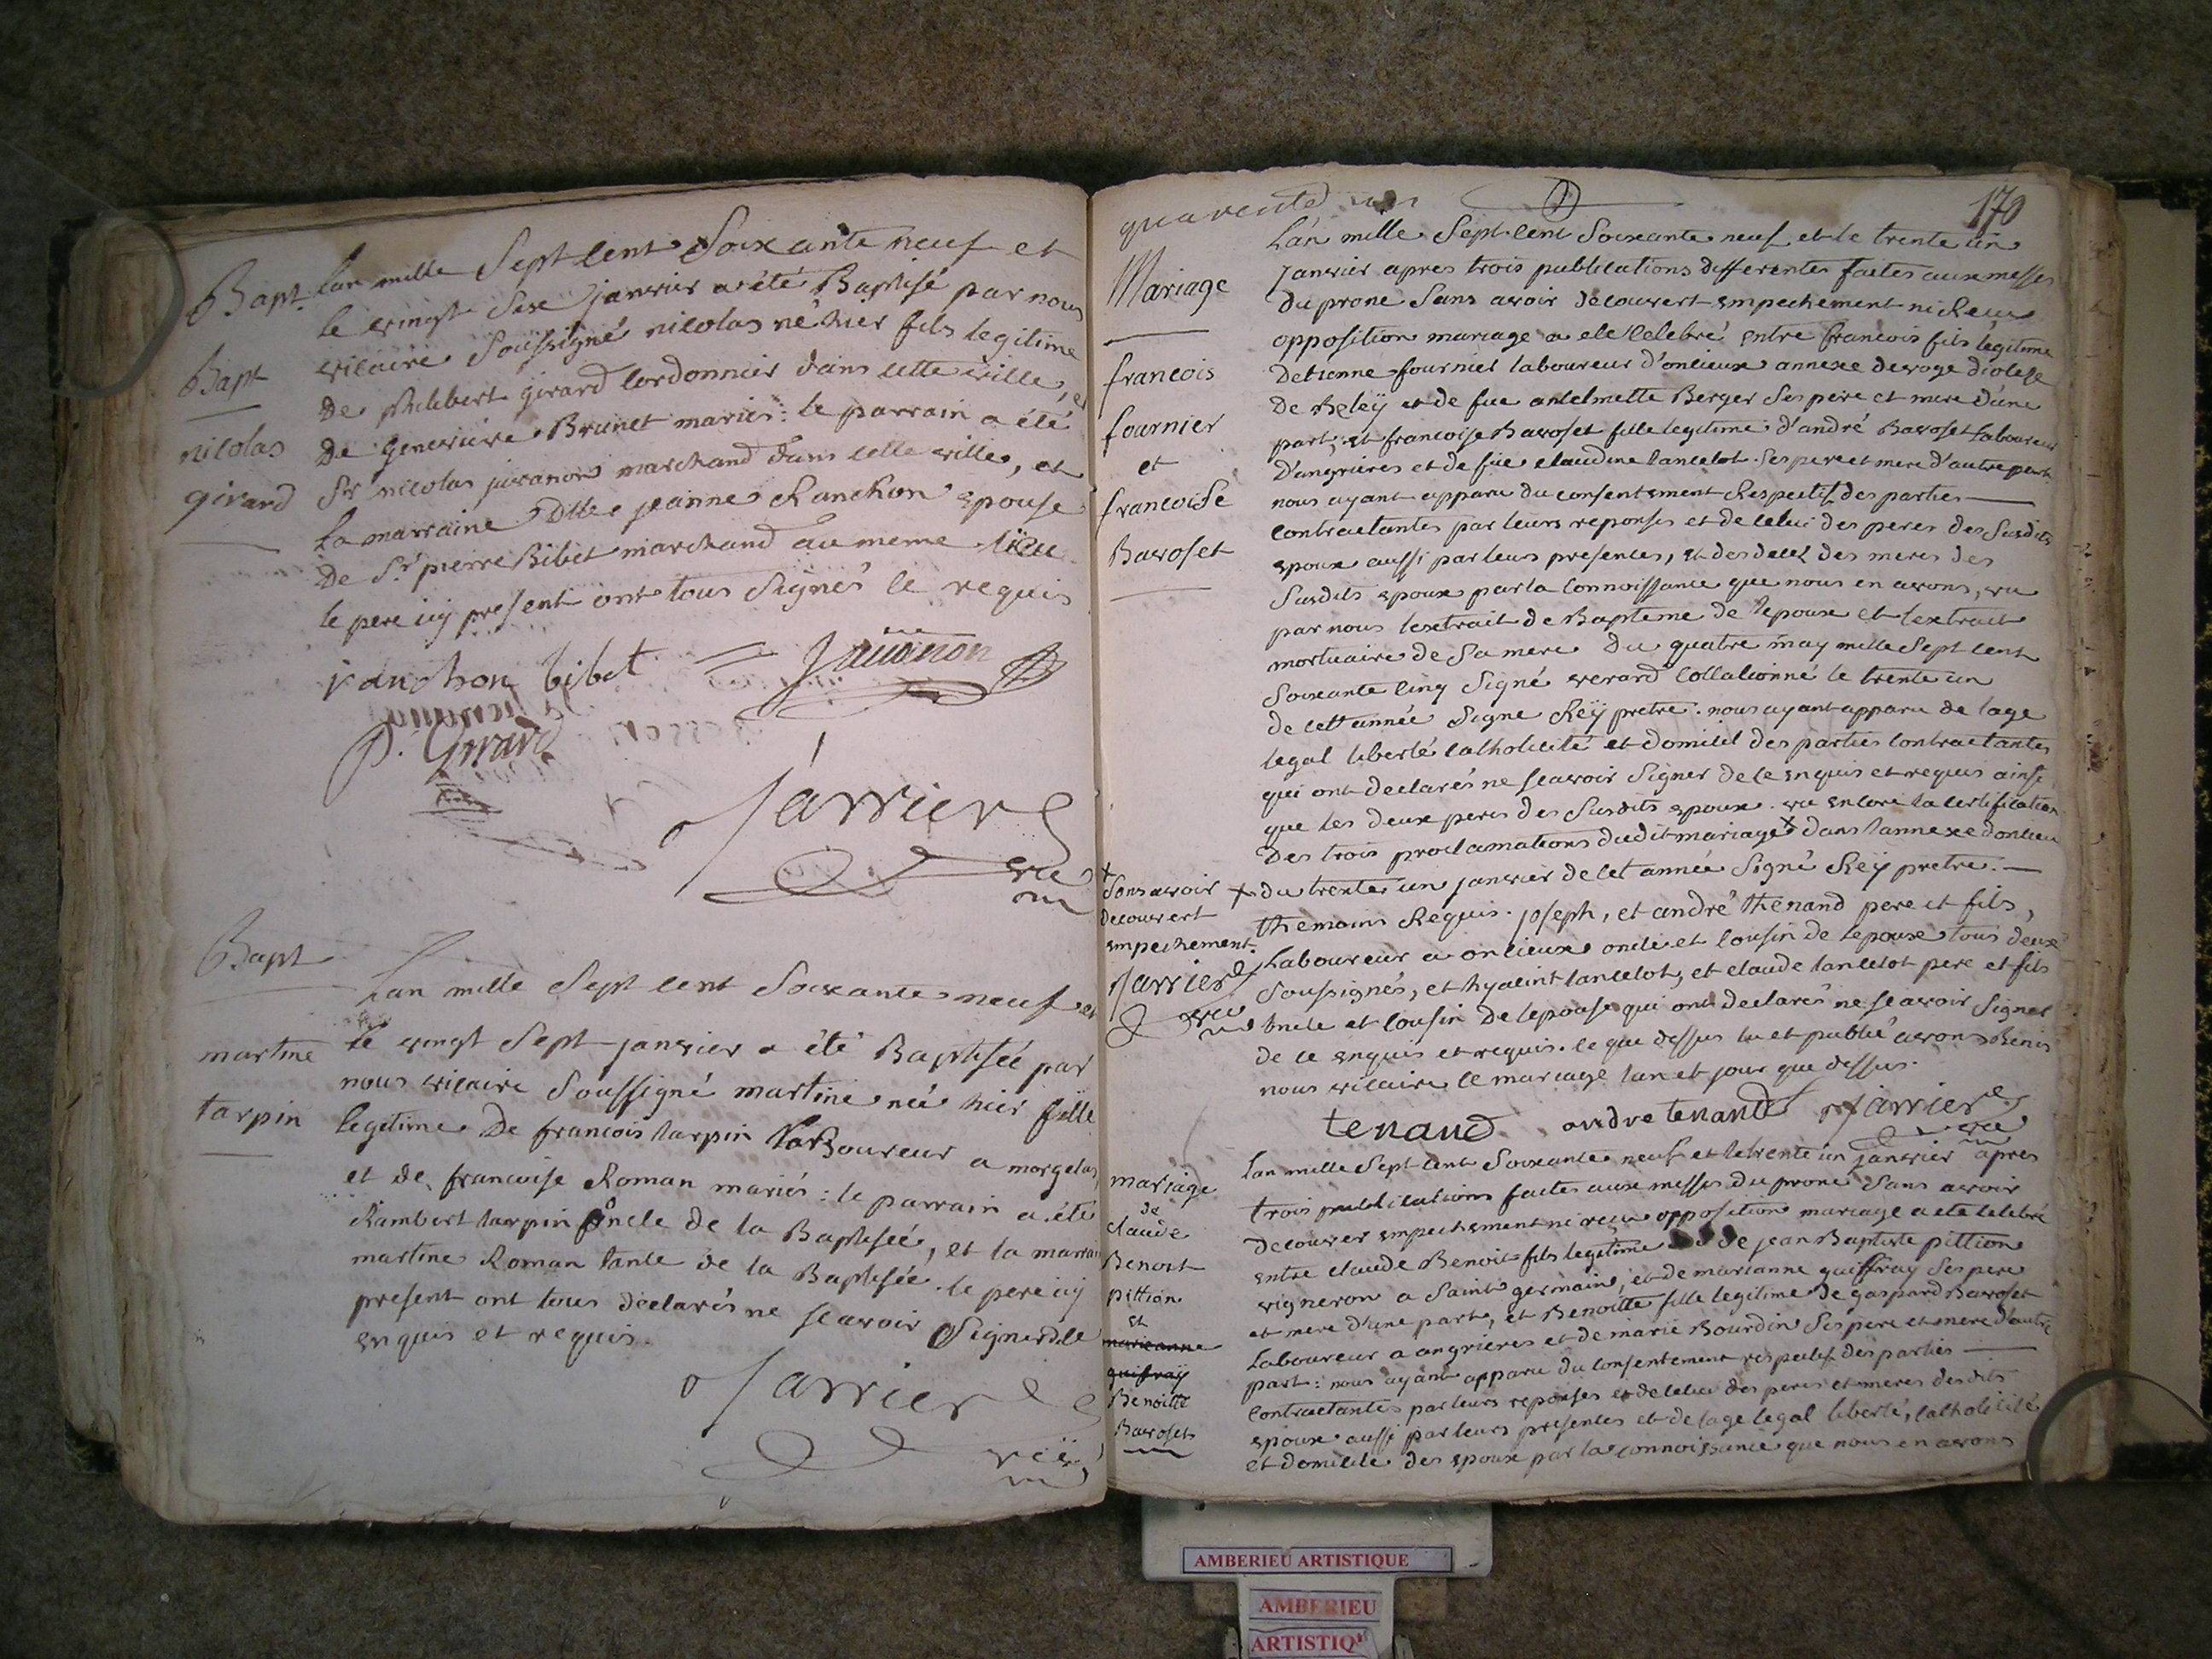 Bapt.
Bapt
nicolas
girard
Lan mille Sept cent Soixante neuf et
le vingt Six janvier a été Baptisé par nous
vicaire Soussigné nicolas né hier fils legitime
De philibert girard Cordonnier dans cette ville, et
De Genevieve Brunet mariés : le parrain a été
Sr nicolas juvanon marchand dans cette ville, et
La marraine Dlle jeanne Ranchon epouse
De Sr pierre Bibet marchand au meme lieu
le pere icy present ont tous Signés le requis
ranchon bibet
Juvanon
P. Girard
Sarriere
vic
Bapt
martine
tarpin
Lan mille Sept cent Soixante neuf et
le vingt Sept janvier a été Baptisée par
nous vicaire Soussigné martine née hier fille
legitime De francois tarpin laBoureur a morgelas
et de francoise Roman mariés : le parrain a été
Rambert tarpin oncle de la Baptisée, et la marrai
martine Roman tante de la Baptisée. le pere icy
present ont tous declarés ne scavoir Signer de
enquis et requis.
Sarriere
vic
quarente un
170
Mariage
francois
fournier
et
francoise
Bavoset
L'an mille Sept cent Soixante neuf et le trente un
Janvier apres trois publications differentes faites aux messes
du prone Sans avoir decouvert empechement ni Reçu
opposition mariage a ete celebré entre francois fils légitime
Detienne fournier laboureur d'onlieux annexe devoge diocese
De Beleÿ et de fue antelmette Berger Ses pere et mere d'une
part, et francoise Bavoset fille legitime d'andré Bavoset Laboureur
D'angrieres et de füe claudine lancelot Ses pere et mere d'autre part
nous ayant apparu du consentement Respectif des parties
Contractantes par leurs reponses et de celui des peres des Susdits
epoux aussi par leurs presences, et des deces des meres des
Susdits epoux par la Connoissance que nous en avons, vu
par nous lextrait de Bapteme de lepoux et lextrait
mortuaire de Sa mere Du quatre may mille Sept cent
Soixante cinq Signé verard Collationné le trente un
de cett année Signe Reÿ pretre. nous ayant apparu de lage
legal liberté catholicité et domicil des parties contractantes
qui ont declarés ne scavoir Signer de ce enquis et requis ainsi
que les deux peres des Susdits epoux. vu encore la certification
Des trois proclamations dudit mariage x dans lannexe donlieu
x du trente un janvier de cet année Signé Reÿ pretre.
themoins Requis. joseph, et andré thenand pere et fils,
Laboureur a onlieux oncle et cousin de lepoux tous deux
Soussignés, et hyacint lancelot, et claude lancelot pere et fils
oncle et cousin de lepouse qui ont declarés ne scavoir Signer
de ce enquis et requis. ce que dessus lu et publié avons Benis
nous vicaire le mariage lan et jour que dessus.
x
Sans avoir
decouvert
empechement
Sarriere
vic
tenand andre tenand Sarriere
vic
mariage
de
claude
Benoit
pittion
et
marianne
guiffray
Benoitte
Bavoset
Lan mille Sept cent Soixante neuf et le trente un janvier apres
trois publications faites aux messes du prone Sans avoir
decouver empechement ni reçu opposition mariage a ete celebré
entre claude Benoit fils legitime de jean Baptiste pittion
vigneron a Saint germain, et de marianne guiffray Ses pere
et mere d'une part, et Benoitte fille legitime de gaspard Bavoset
Laboureur a angrieres et de marie Bourdin Ses pere et mere d'autre
part : nous ayant apparu du consentement respectif des parties
Contractantes par leurs reponses et de celui des peres et meres desdits
epoux aussi par leurs presences et de lage legal liberté, catholicité
et domicile des epoux par la connoissance que nous en avons
AMBERIEU ARTISTIQUE
AMBERIEU
ARTISTIQ